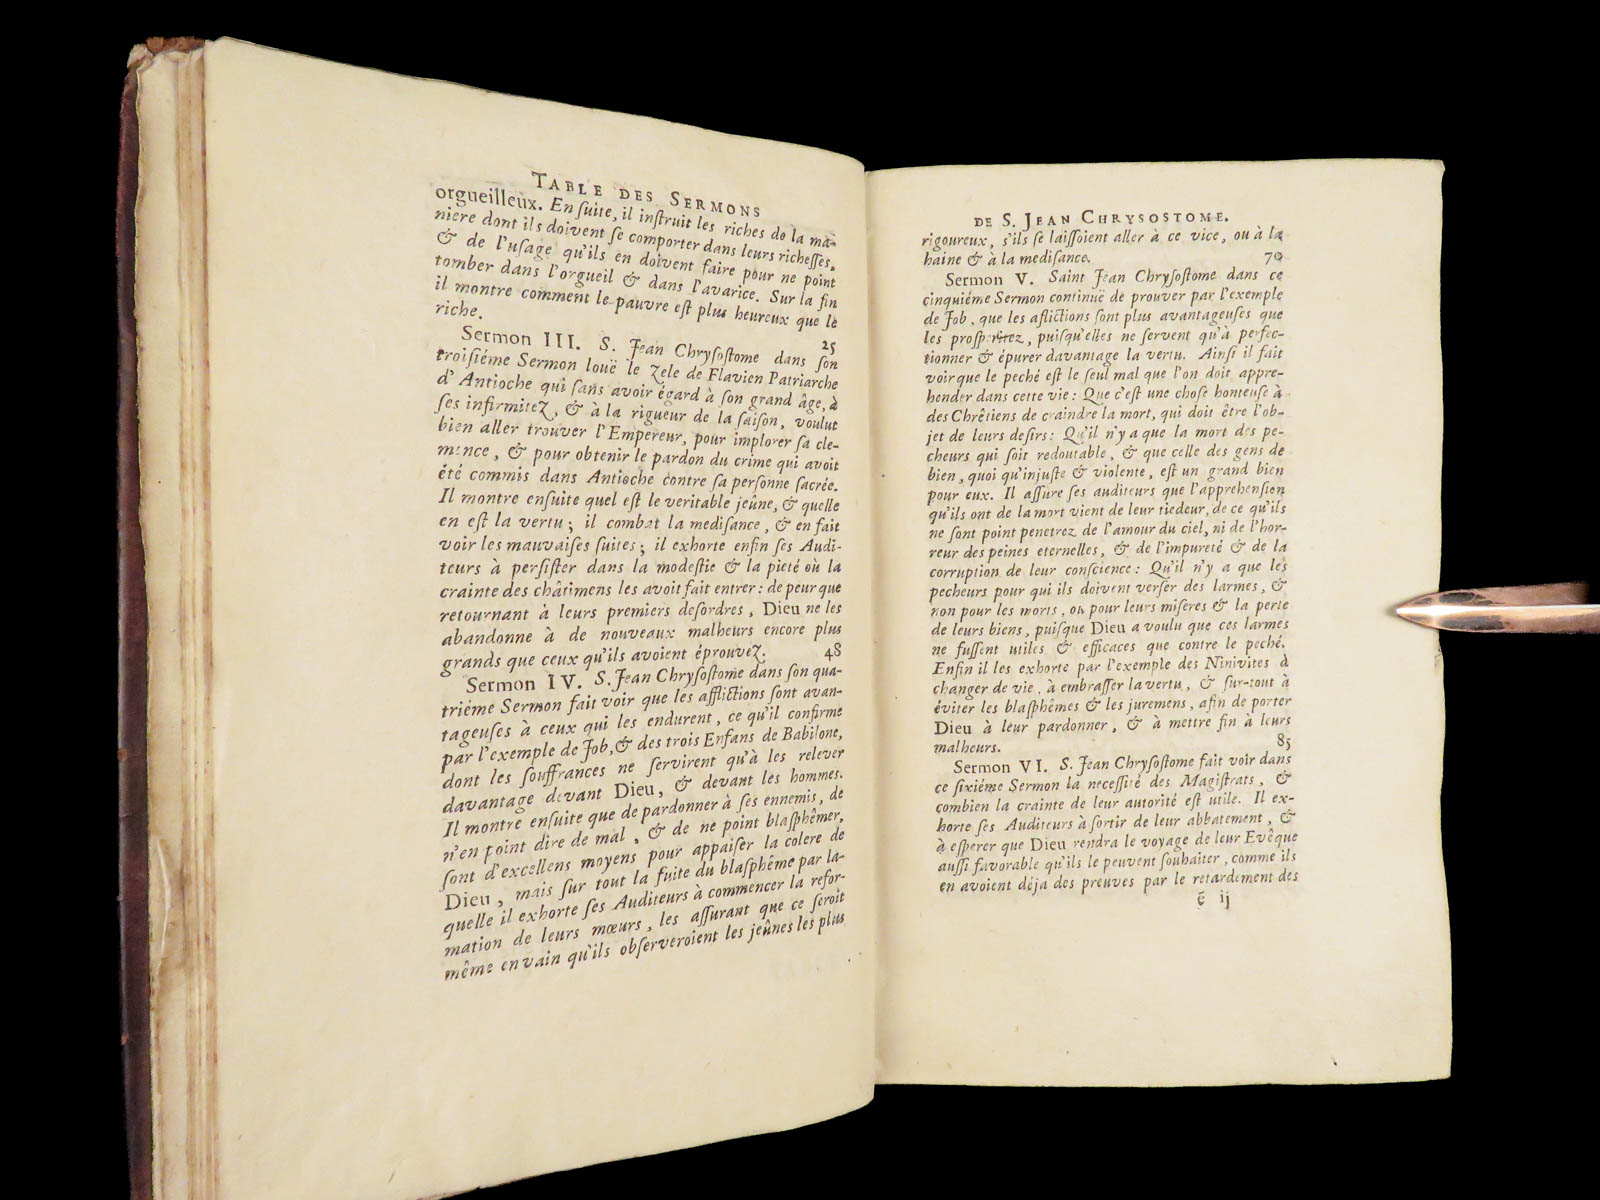 TABLE DES SERMONS
orgueilleux. En ſuite, il inſtruit les riches de la ma-
niere dont ils doivent ſe comporter dans leurs richeſſes,
& de l'uſage qu'ils en doivent faire pour ne point
tomber dans l'orgueil & dans l'avarice. Sur la fin
il montre comment le pauvre eſt plus heureux que le
riche. 25
Sermon III. S. Jean Chryſoſtome dans ſon
troiſiéme Sermon louë le Zele de Flavien Patriarche
d'Antioche qui ſans avoir égard à ſon grand âge, à
ſes infirmitez, & à la rigueur de la ſaiſon, voulut
bien aller trouver l'Empereur, pour implorer ſa cle-
mence, & pour obtenir le pardon du crime qui avoit
été commis dans Antioche contre ſa perſonne ſacrée.
Il montre enſuite quel eſt le veritable jeûne, & quelle
en eſt la vertu; il combat la mediſance, & en fait
voir les mauvaiſes ſuites; il exhorte enfin ſes Audi-
teurs à perſiſter dans la modeſtie & la pieté où la
crainte des châtimens les avoit fait entrer: de peur que
retournant à leurs premiers deſordres, Dieu ne les
abandonne à de nouveaux malheurs encore plus
grands que ceux qu'ils avoient éprouvez. 48
Sermon IV. S. Jean Chryſoſtome dans ſon qua-
triéme Sermon fait voir que les afflictions ſont avan-
tageuſes à ceux qui les endurent, ce qu'il confirme
par l'exemple de Job, & des trois Enfans de Babilone,
dont les ſouffrances ne ſervirent qu'à les relever
davantage devant Dieu, & devant les hommes.
Il montre enſuite que de pardonner à ſes ennemis, de
n'en point dire de mal, & de ne point blaſphêmer,
ſont d'excellens moyens pour appaiſer la colere de
Dieu, mais ſur tout la fuite du blaſphême par la-
quelle il exhorte ſes Auditeurs à commencer la refor-
mation de leurs mœurs, les aſſurant que ce ſeroit
même en vain qu'ils obſerveroient les jeûnes les plus
DE S. JEAN CHRYSOSTOME.
rigoureux, s'ils ſe laiſſoient aller à ce vice, ou à la
haine & à la mediſance. 70
Sermon V. Saint Jean Chryſoſtome dans ce
cinquiéme Sermon continuë de prouver par l'exemple
de Job, que les aflictions ſont plus avantageuſes que
les proſperitez, puiſqu'elles ne ſervent qu'à perfec-
tionner & épurer davantage la vertu. Ainſi il fait
voir que le peché eſt le ſeul mal que l'on doit appre-
hender dans cette vie: Que c'eſt une choſe honteuſe à
des Chrêtiens de craindre la mort, qui doit être l'ob-
jet de leurs deſirs: Qu'il n'y a que la mort des pe-
cheurs qui ſoit redoutable, & que celle des gens de
bien, quoi qu'injuſte & violente, eſt un grand bien
pour eux. Il aſſure ſes auditeurs que l'apprehenſion
qu'ils ont de la mort vient de leur tiedeur, de ce qu'ils
ne ſont point penetrez de l'amour du ciel, ni de l'hor-
reur des peines eternelles, & de l'impureté & de la
corruption de leur conſcience: Qu'il n'y a que les
pecheurs pour qui ils doivent verſer des larmes, &
non pour les morts, ou pour leurs miſeres & la perte
de leurs biens, puiſque Dieu a voulu que ces larmes
ne fuſſent utiles & efficaces que contre le peché.
Enfin il les exhorte par l'exemple des Ninivites à
changer de vie, à embraſſer la vertu, & ſur-tout à
éviter les blaſphêmes & les juremens, afin de porter
Dieu à leur pardonner, & à mettre fin à leurs
malheurs. 85
Sermon VI. S. Jean Chryſoſtome fait voir dans
ce ſixiéme Sermon la neceſſité des Magiſtrats, &
combien la crainte de leur autorité eſt utile. Il ex-
horte ſes Auditeurs à ſortir de leur abbatement, &
à eſperer que Dieu rendra le voyage de leur Evêque
auſſi favorable qu'ils le peuvent ſouhaiter, comme ils
en avoient déja des preuves par le retardement des
ẽ ij